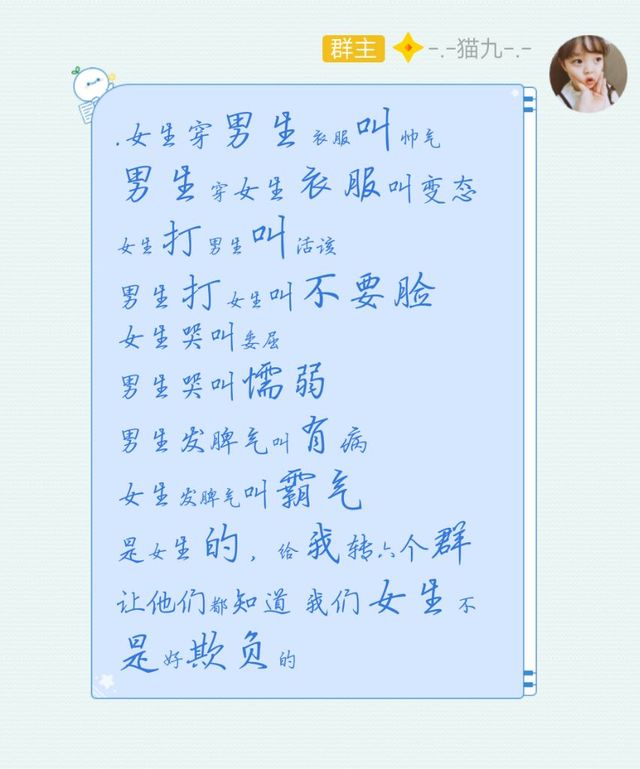 群主 -.-猫九-.-
.女生穿男生衣服叫帅气
男生穿女生衣服叫变态
女生打男生叫活该
男生打女生叫不要脸
女生哭叫委屈
男生哭叫懦弱
男生发脾气叫有病
女生发脾气叫霸气
是女生的，给我转六个群
让他们都知道 我们女生不
是好欺负的